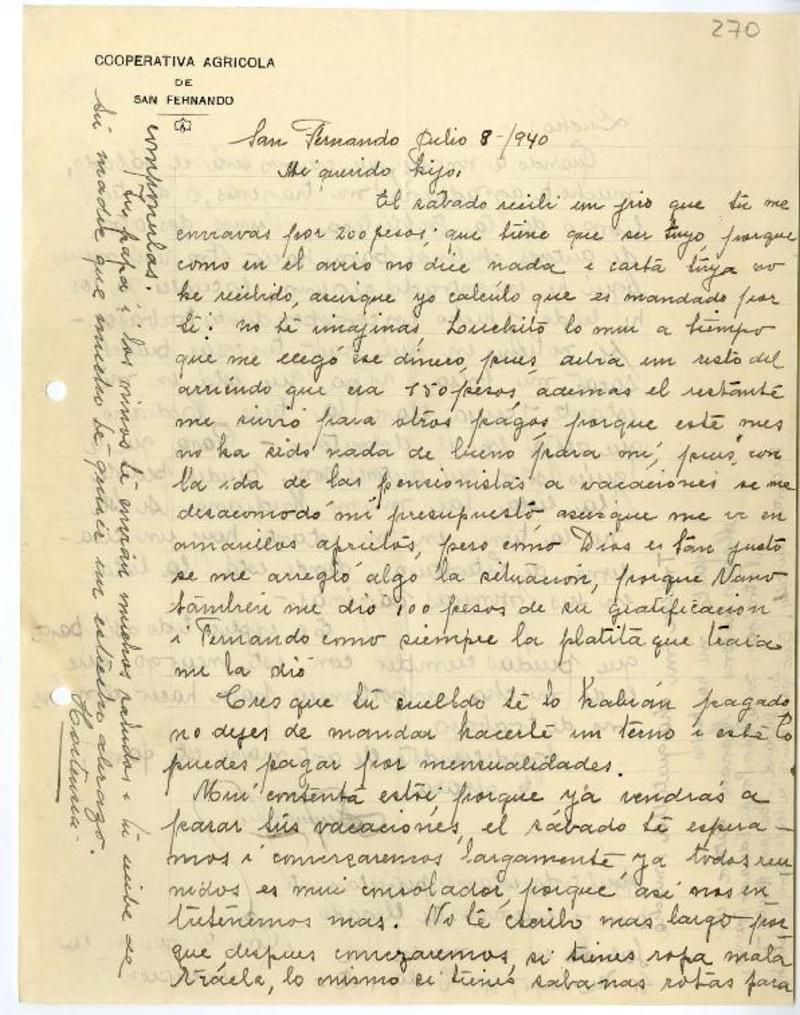 270
COOPERATIVA AGRICOLA
DE
SAN FERNANDO
San Fernando Julio 8-/940
Mi querido hijo.
El sábado recibi un jiro que tú me
enviavas por 200 pesos; que tiene que ser tuyo, porque
como en el aviso no dice nada i carta tuya no
he recibido, asuique yo calculo que es mandado por
ti: no te imajinas, Luchito lo mui a tiempo
que me llegó ese dinero, pues, debia un resto del
arriendo que era 150 pesos, ademas el restante
me sirvió para otros pagos, porque este mes
no ha sido nada de bueno para mi, pues, con
la ida de las pensionistas a vacaciones se me
desacomodó mi presupuesto, asuique me vi en
amarillos aprietos, pero como Dios es tan justo
se me arregló algo la situación, porque Nano
tambien me dió 100 pesos de su gratificacion
i Fernando como siempre la platita que traia
me la dió
Creo que tú sueldo te lo habrán pagado,
no dejes de mandar hacerte un terno i este lo
puedes pagar por mensualidades.
Mui contenta estói, porque ya vendrás a
pasar tús vacaciones, el sábado te espera-
mos i conversaremos largamente, ya todos reu-
nidos es mui consolador, porque, así nos en-
treténemos mas. No te escribo mas largo por-
que despues conversaremos, si tienes ropa mala
tráela, lo mismo si tienes sabanas rotas para
componerlas.
Tú papá i los niños te envian muchos saludos i tú recibe de
tú madre que mucho te quiere un estrecho abrazo.
Hortensia-